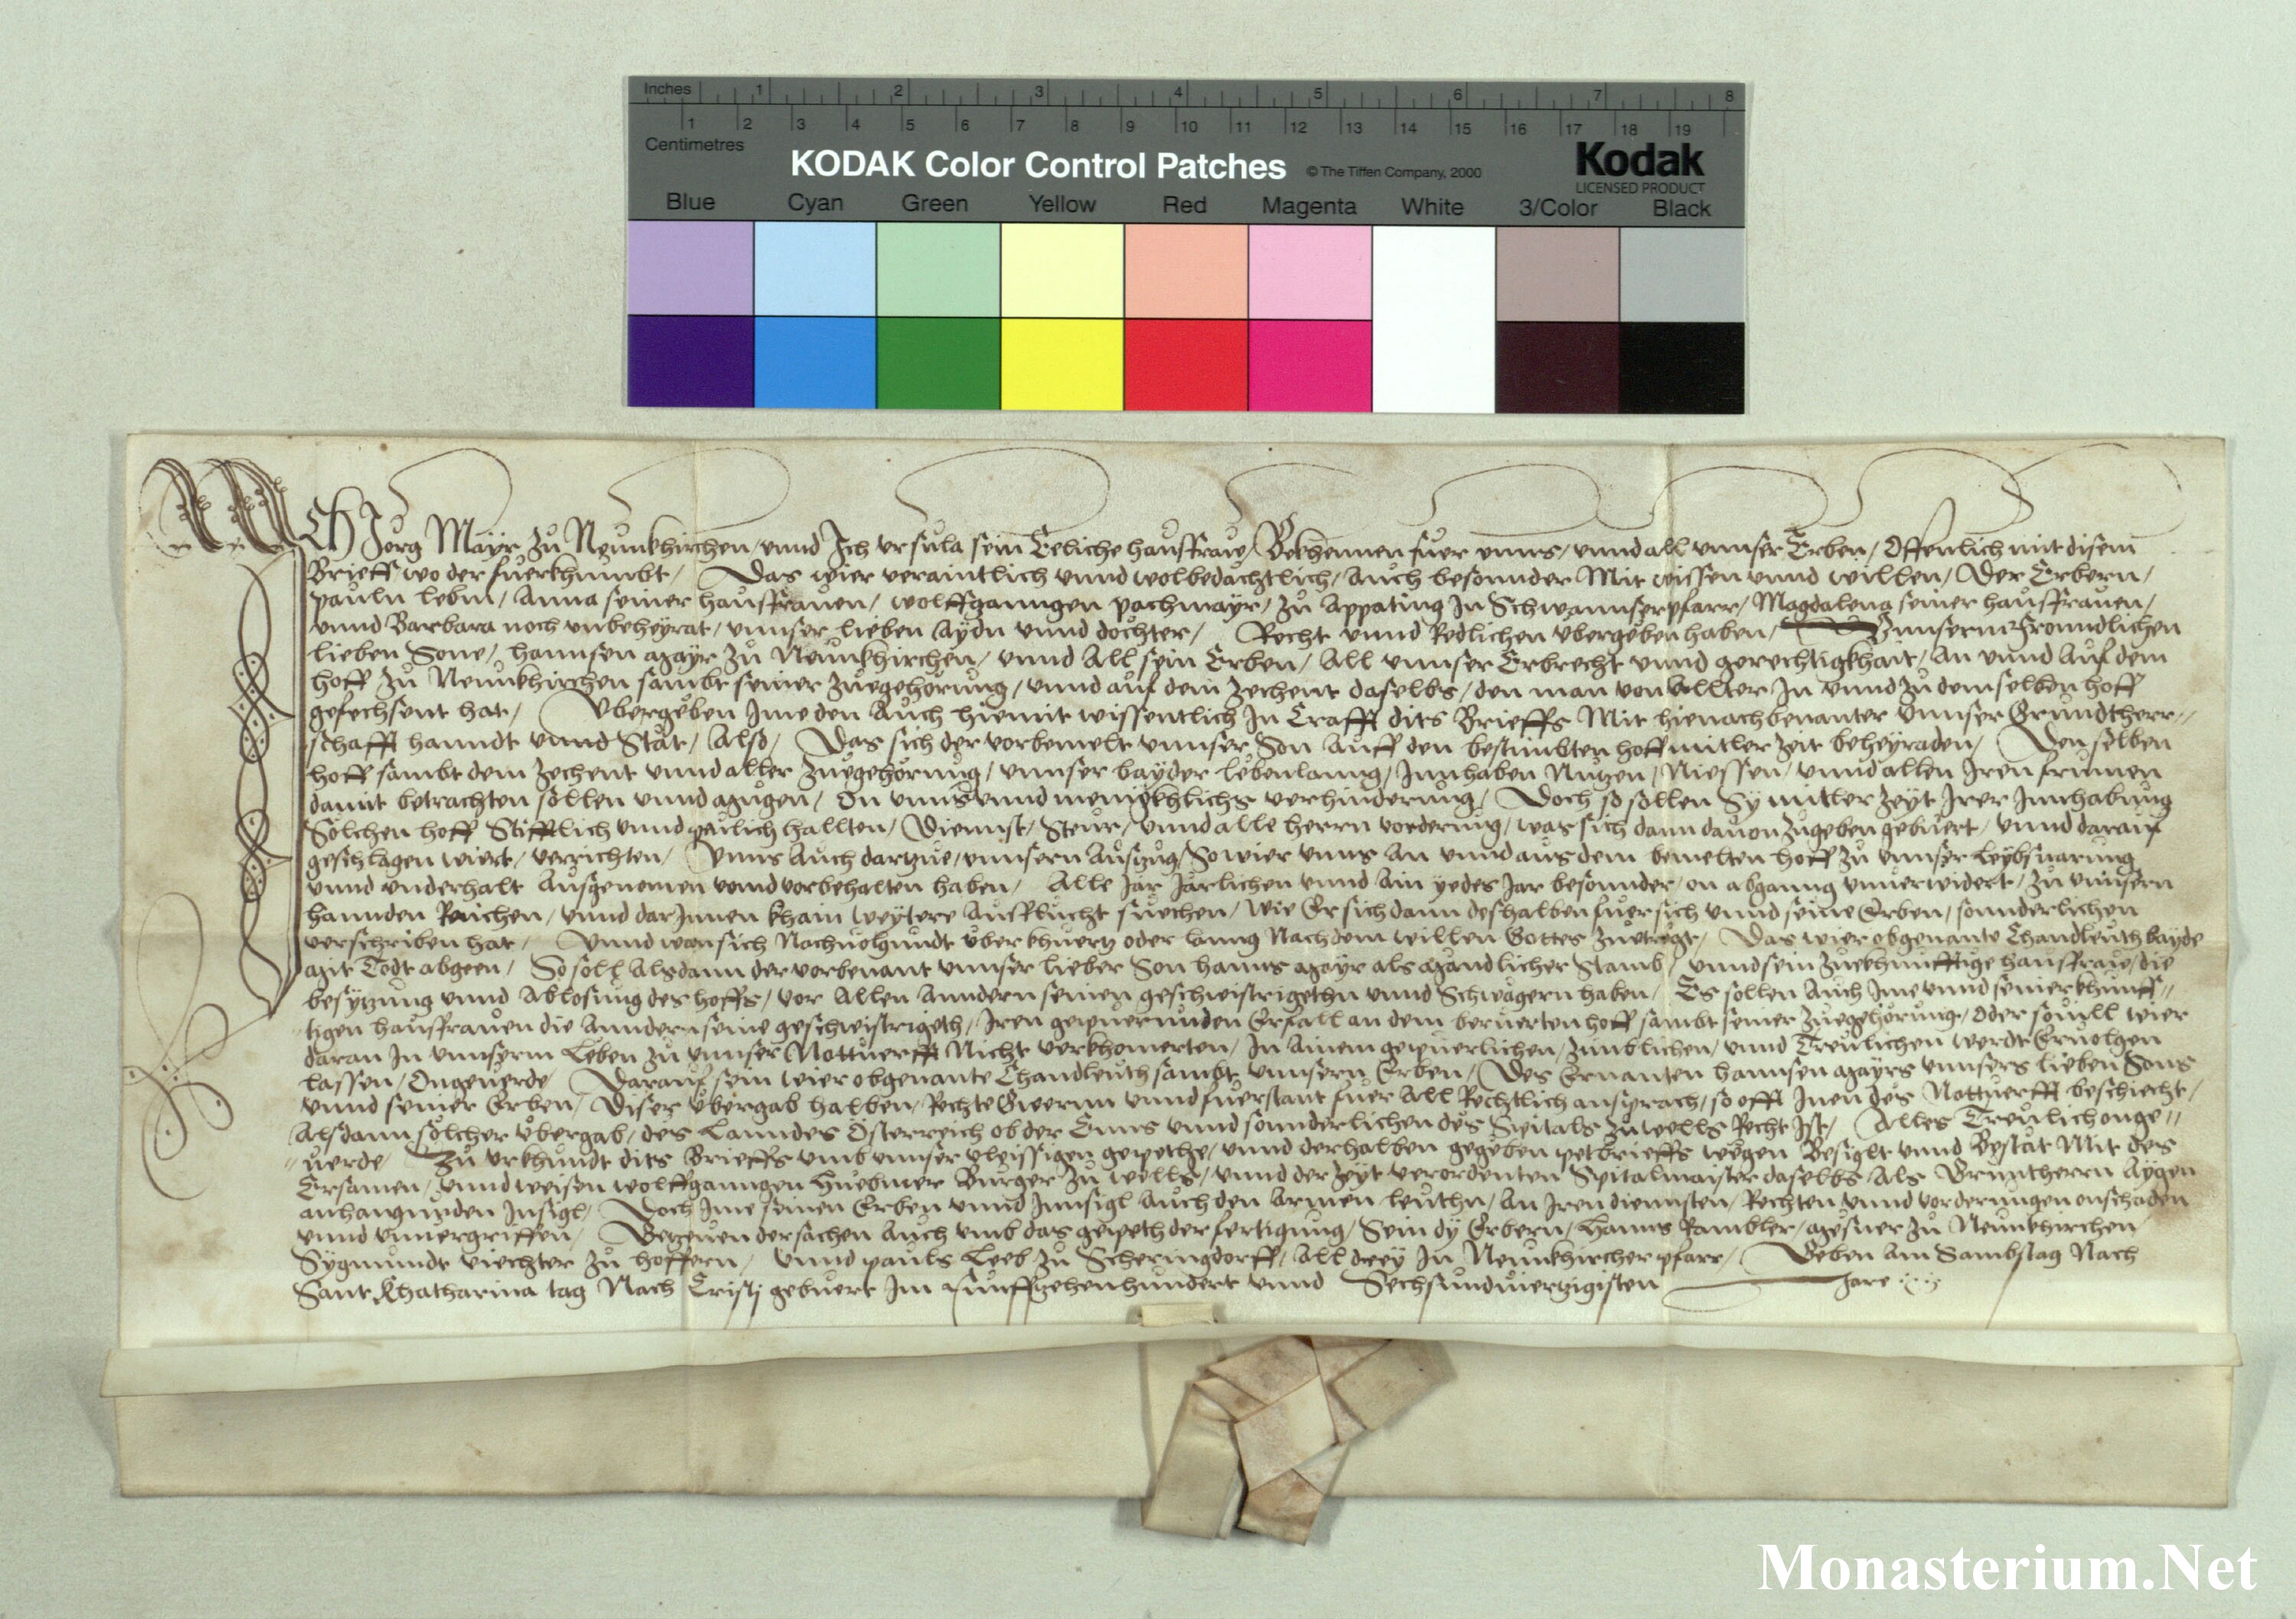 Inches 1 2 3 4 5 6 7 8
1 2 3 4 5 6 7 8 9 10 11 12 13 14 15 16 17 18 19
Centimetres
KODAK Color Control Patches © The Tiffen Company, 2000 Kodak
LICENSED PRODUCT
Blue Cyan Green Yellow Red Magenta White 3/Color Black
Ich Jörg Mayr zů Neunkhirchen / vnnd Ich Vrsula sein Eeliche haußfraw / Bekhennen fuer vnns / vnnd all vnnser Erben / Offenlich mit disem
Brieff wo der fuerkhumbt / Das wier verainntlich vnnd wolbedächtlich / Auch besonnder Mit wissen vnnd willen / Der Erbern /
pauln lebm / Anna seiner haußfrauen / wolffganngen pachmayr / zů Appating In Schwannserpfarr / Magdalena seiner haußfrauen /
vnnd Barbara noch vnbeheyrat / vnnser lieben Aydn vnnd dochter / Recht vnnd Redlichen vbergeben haben / Vnnserm Freundlichen
lieben Sone / hannsen Mayr zů Neunkhirchen / vnnd All sein Erben / All vnnser Erbrecht vnnd gerechtigkhait / An vnnd Auf dem
hoff zů Neunkhirchen sambt seiner zuegehörung / vnnd auf dem zechent daselbs / den man von Allter In vnnd zů demselben hoff
gefechsent hat / Vbergeben Ime den Auch hiemit wissentlich In Crafft dits Brieffs Mit hienachbenanter Vnnser Grundtherr-
schafft hanndt vnnd Stät / Also / Das sich der vorbemelt vnnser Son Auff den bestimbten hoff mitler zeit beheyraden / Den selben
hoff sambt dem zechent vnnd aller zuegehörung / vnnser bayder lebenlanng / Innhaben Nutzen / Niessen / vnnd allen Iren frumen
damit betrachten sollen vnnd mugen / On vnns vnnd menigkhlichs verhinderung / Doch so sollen Sy mitler zeyt Irer Innhabung
Solchen hoff Stifftlich vnnd peulich hallten / Diennst / Steur / vnnd alle herrn vorderung / was sich dann dauon zugeben gebuert / vnnd darauf
geschlagen wiert / verrichten / Vnns Auch dartzue / vnnsern Auszug / So wier vnns An vnnd aus dem bemelten hoff zů vnnser Leybsnarung
vnnd vnderhalt Ausgenomen vnnd vorbehalten haben / Alle Jar Järlichen vnnd Ain yedes Jar besonnder / on abganng vnuerwidert / zů vnnsern
hannden Raichen / vnnd darInnen khain weytere Ausflucht suechen / wie Er sich dann deshalben fuer sich vnnd seine Erben / sonnderlichen
verschriben hat / Vnnd wan sich Nachuolgundt vber khurtz oder lanng Nach dem willen Gottes zuetregt / Das wier obgenante Chandleuth bayde
Mit Todt abgeen / So soll Alsdann der vorbenant vnnser lieber Son hanns Mayr als Mandlicher Stamb / vnnd sein zuekhunfftige haußfraw / die
besytzung vnnd Ablosung des hoffs / vor Allen Anndern seinen geschwistrigethn vnnd Schwägern haben / Es sollen Auch Ime vnnd seiner khunff-
tigen haußfrauen die Anndern seine geschwistrigeth / Iren gepuerunden Erfall an dem beruerten hoff sambt seiner zuegehörung / Oder souill wier
daran In vnnserm Leben zů vnnser Nottuerfft Nicht verkhomerten / In Ainem gepuerlichen / zimblichen / vnnd Treulichen werdt Eruolgen
lassen / Ongeuerde / Darauf sein wier obgenante Chandleuth sambt vnnsern Erben / Des Ernanten hannsen Mayrs vnnsers lieben Sons
vnnd seiner Erben / Diser vbergab halben / Rechte Gwern vnnd fuerstant fuer All Rechtlich ansprach / so offt Inen des Nottuerfft beschiecht /
Alsdann solcher vbergab / des Lanndes Österreich ob der Enns vnnd sonnderlichen des Spitals zů wells Recht Ist / Alles Treulich onge-
uerde / Zů vrkhundt dits Brieffs vmb vnnser vleissigen gepethe / vnnd derhalben gegeben petbrieffs wegen Besiglt vnnd Bystät Mit des
Ersamen / vnnd weisen wolffganngen Huebmer Burger zů wells / vnnd der zeyt verordenten Spitalmaister daselbs / Als Gruntherrn Aygen
anhangunden Insigl / Doch Ime seinen Erben vnnd Innsigl Auch den Armen leuthn / An Iren diennsten / Rechten vnnd vorderungen onschaden
vnnd vnuergriffen / Getzeugen der sachen Auch vmb das gepeth der fertigung / Sein dy Erbern / Hanns Rambler / Mesner zů Neunkhirchen /
Sygmundt viechter zů hoffern / vnnd pauls Leeb zů Scheringdorff / All drey In Neunkhircher pfarr / Geben Am Sambstag Nach
Sant Khatharina tag Nach Cristj geburt Im Funffzehenhundert vnnd Sechsundviertzigisten Jare
Monasterium.Net